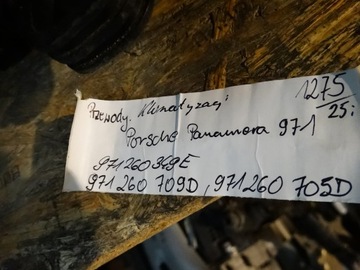 1275
25:
Przewody Klimatyzacji
Porsche Panamera 971
971 260 349E
971 260 709D, 971 260 705D